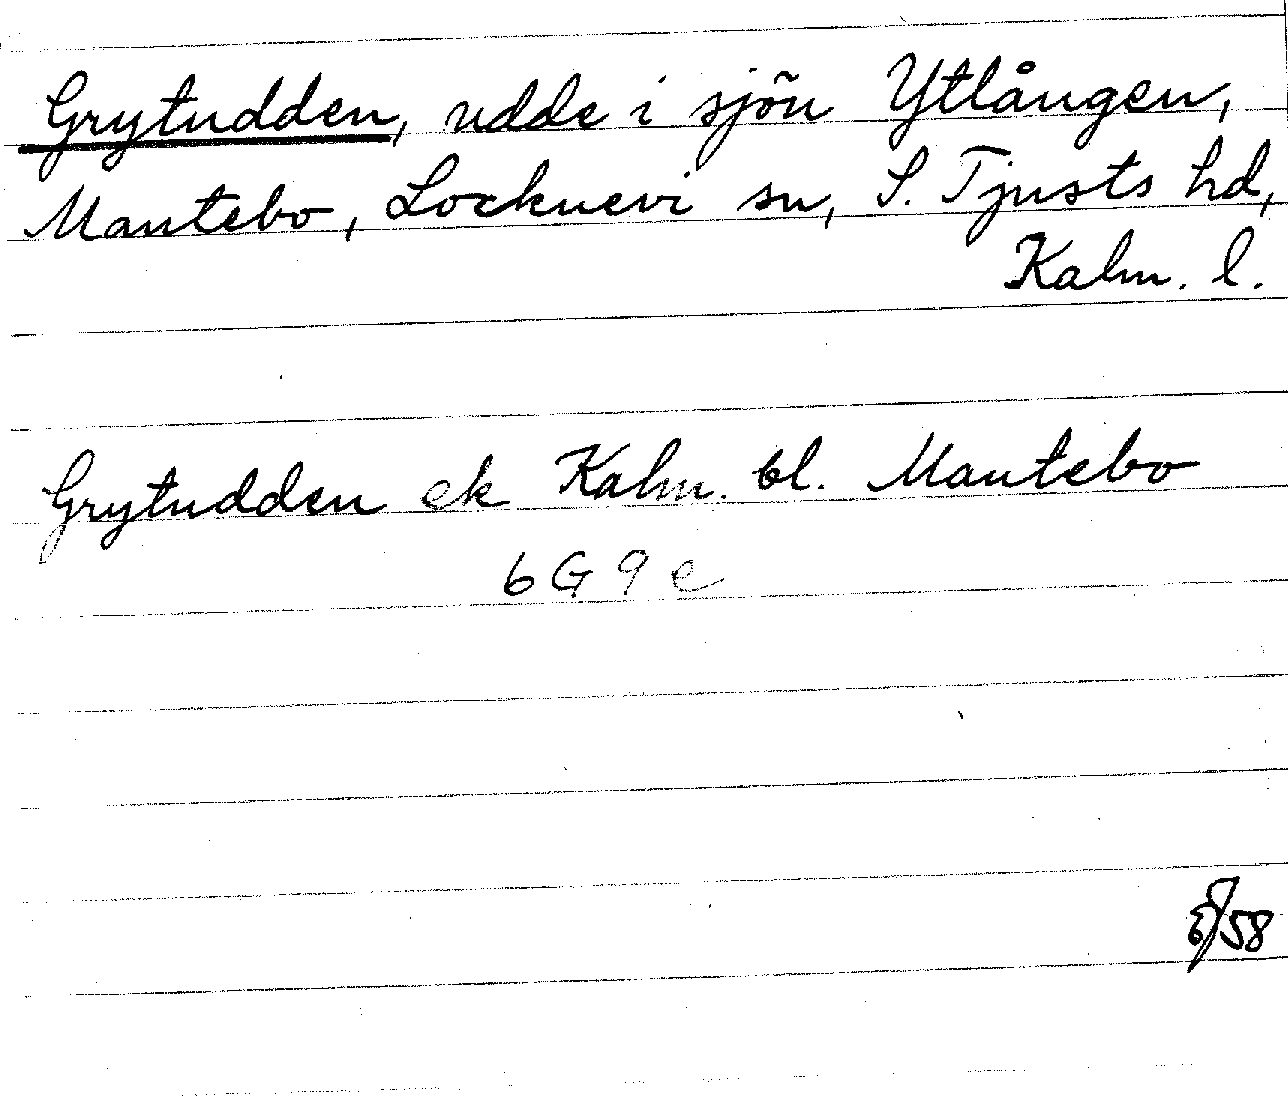 Grytudden, udde i sjön Ytlången,
Mantebo, Locknevi sn, S. Tjusts hd,
Kalm. l.
Grytudden ek Kalm. bl. Mantebo
6G9e
58